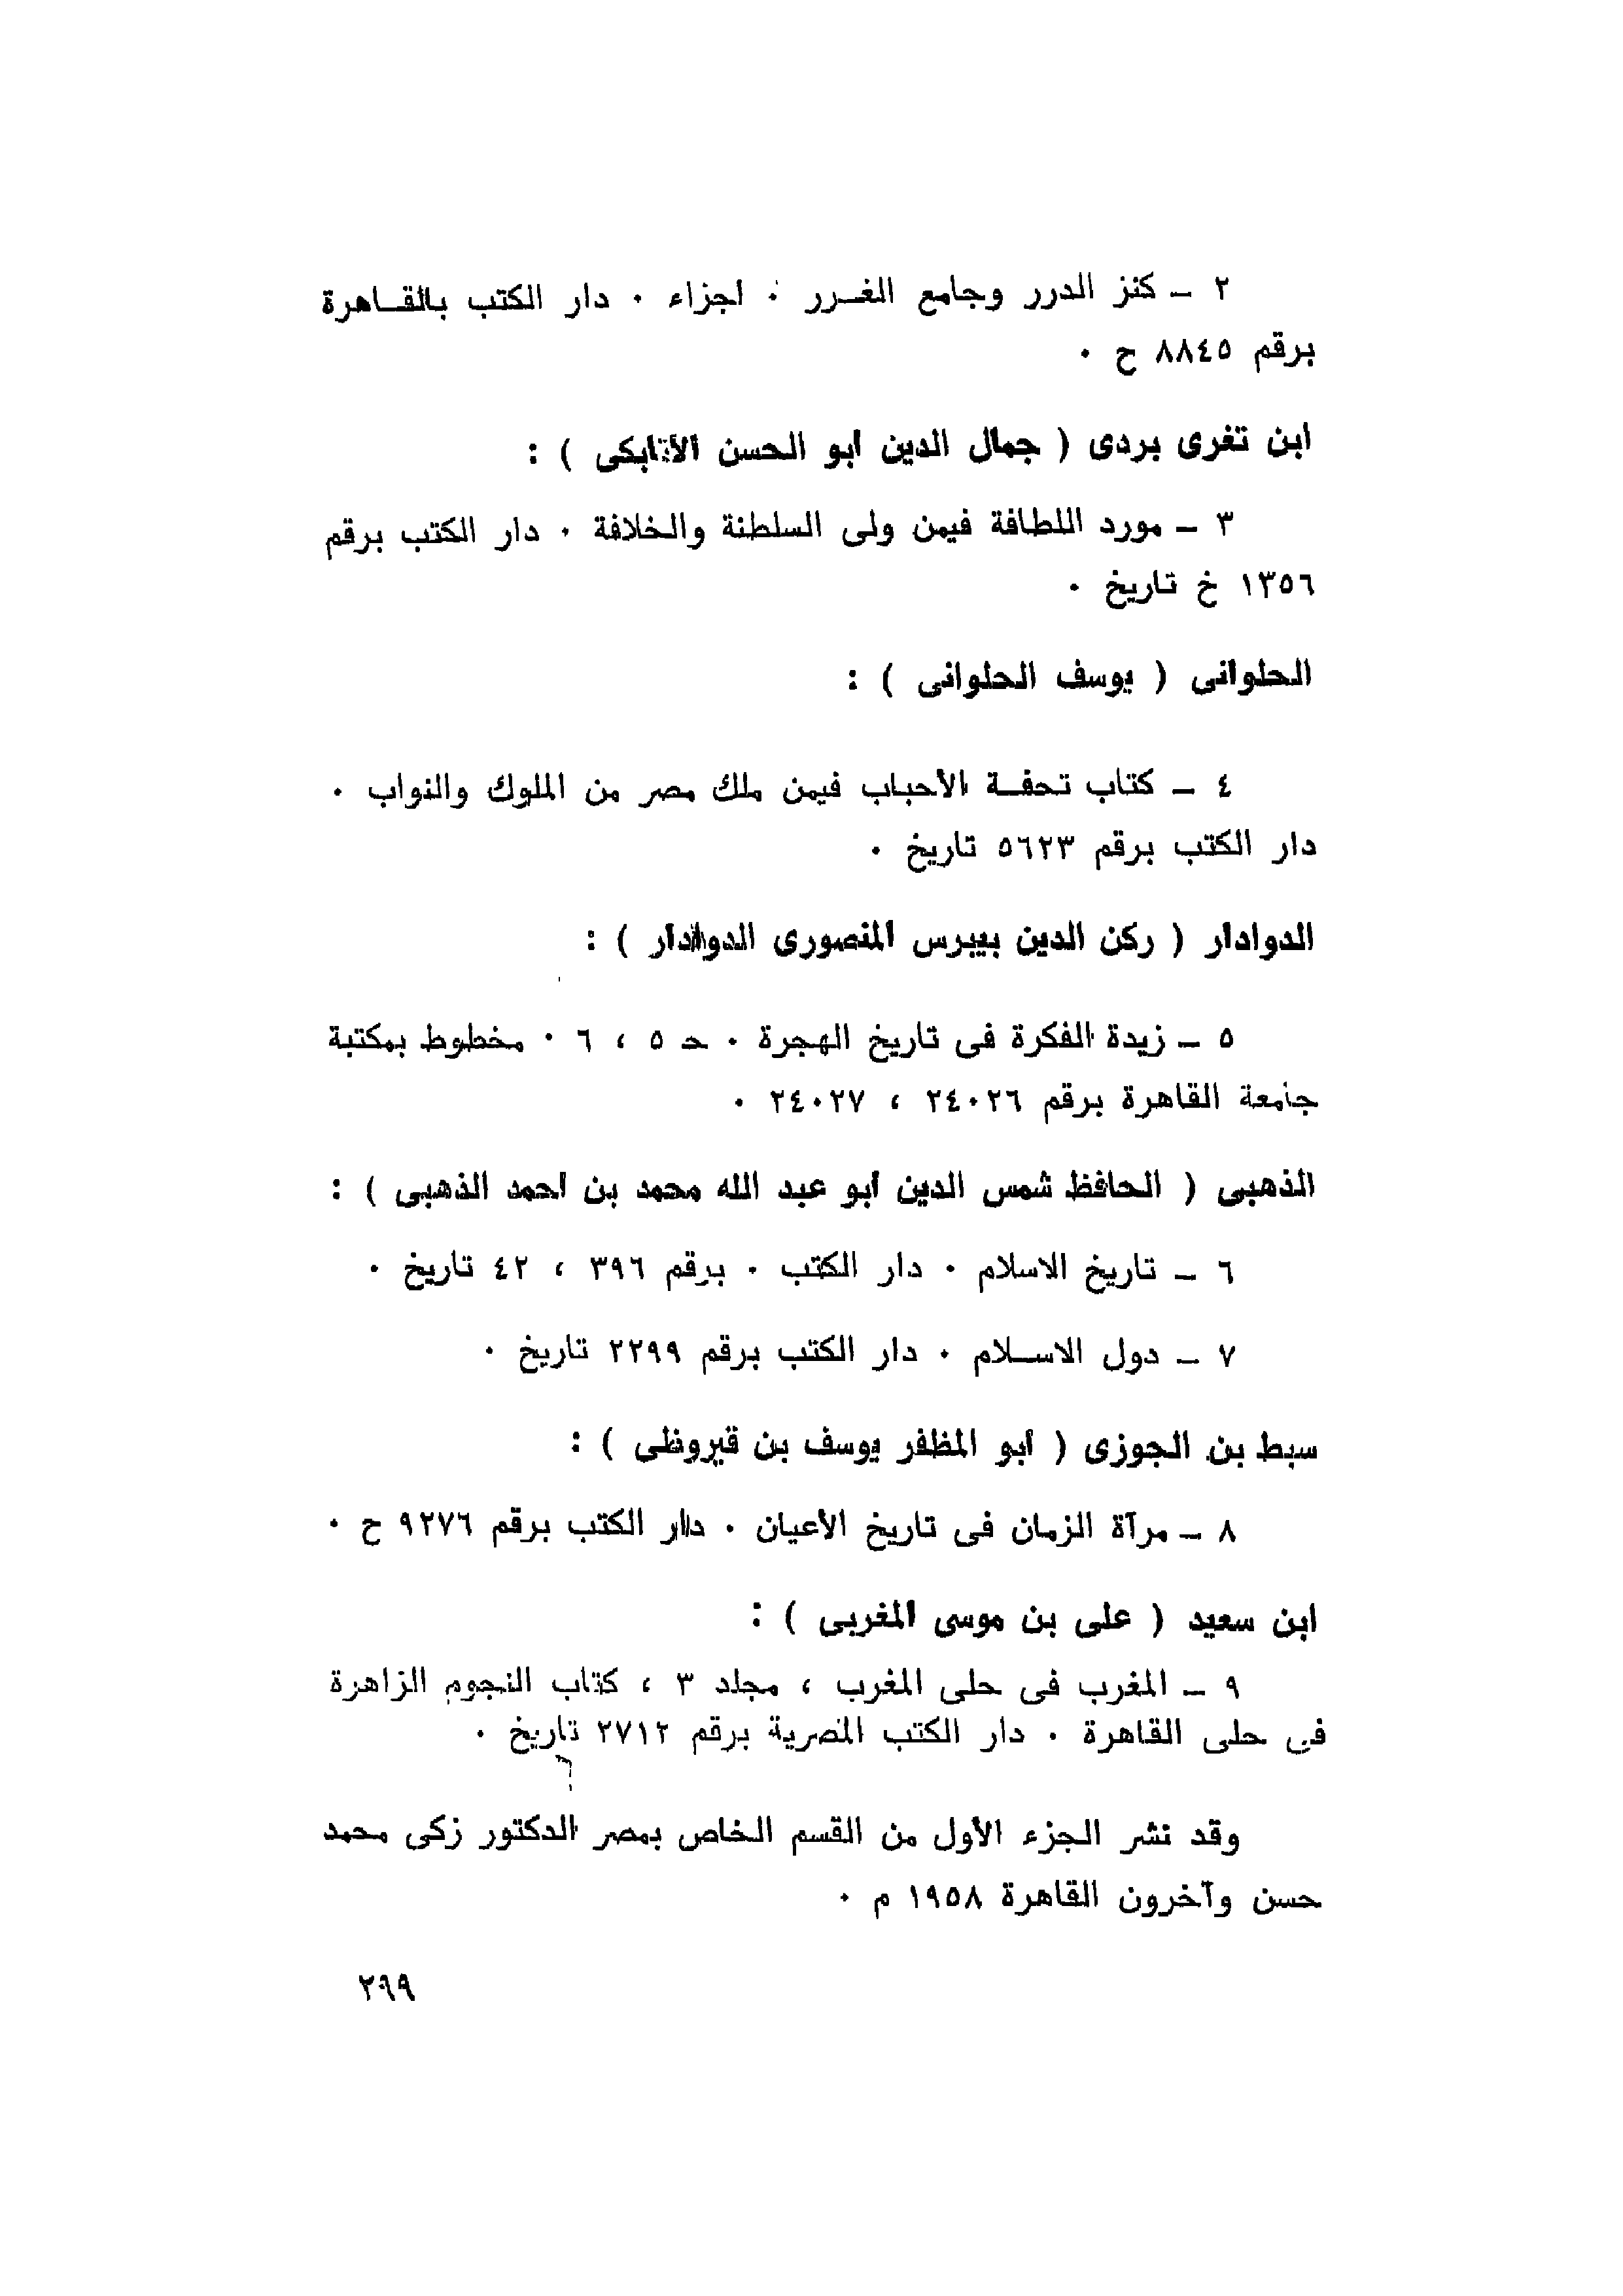 ٢ ــ كنز الدرر وجامع الغــرر ٠ اجزاء ٠ دار الكتب بالقــاهرة
برقم ٨٨٤٥ ح ٠
ابن تغرى بردى ( جمال الدين ابو الحسن الأتابكى ) :
٣ ــ مورد اللطافة فيمن ولى السلطنة والخلافة ٠ دار الكتب برقم
١٣٥٦ خ تاريخ ٠
الحلوانى ( يوسف الحلوانى ) :
٤ ــ كتاب تحفــة الأحباب فيمن ملك مصر من الملوك والنواب ٠
دار الكتب برقم ٥٦٢٣ تاريخ ٠
الدوادار ( ركن الدين بيبرس المنصورى الدوادار ) :
٥ ــ زيدة الفكرة فى تاريخ الهجرة ٠ حـ ٥ ، ٦ ٠ مخطوط بمكتبة
جامعة القاهرة برقم ٢٤٠٢٦ ، ٢٤٠٢٧ ٠
الذهبى ( الحافظ شمس الدين أبو عبد الله محمد بن احمد الذهبى ) :
٦ ــ تاريخ الاسلام ٠ دار الكتب ٠ برقم ٣٩٦ ، ٤٢ تاريخ ٠
٧ ــ دول الاســلام ٠ دار الكتب برقم ٢٢٩٩ تاريخ ٠
سبط بن الجوزى ( أبو المظفر يوسف بن قيروظى ) :
٨ ــ مرآة الزمان فى تاريخ الأعيان ٠ دار الكتب برقم ٩٢٧٦ ح ٠
ابن سعيد ( على بن موسى المغربى ) :
٩ ــ المغرب فى حلى المغرب ، مجلد ٣ ، كتاب النجوم الزاهرة
فى حلى القاهرة ٠ دار الكتب المصرية برقم ٢٧١٢ تاريخ ٠
وقد نشر الجزء الأول من القسم الخاص بمصر الدكتور زكى محمد
حسن وآخرون القاهرة ١٩٥٨ م ٠
٢٩٩